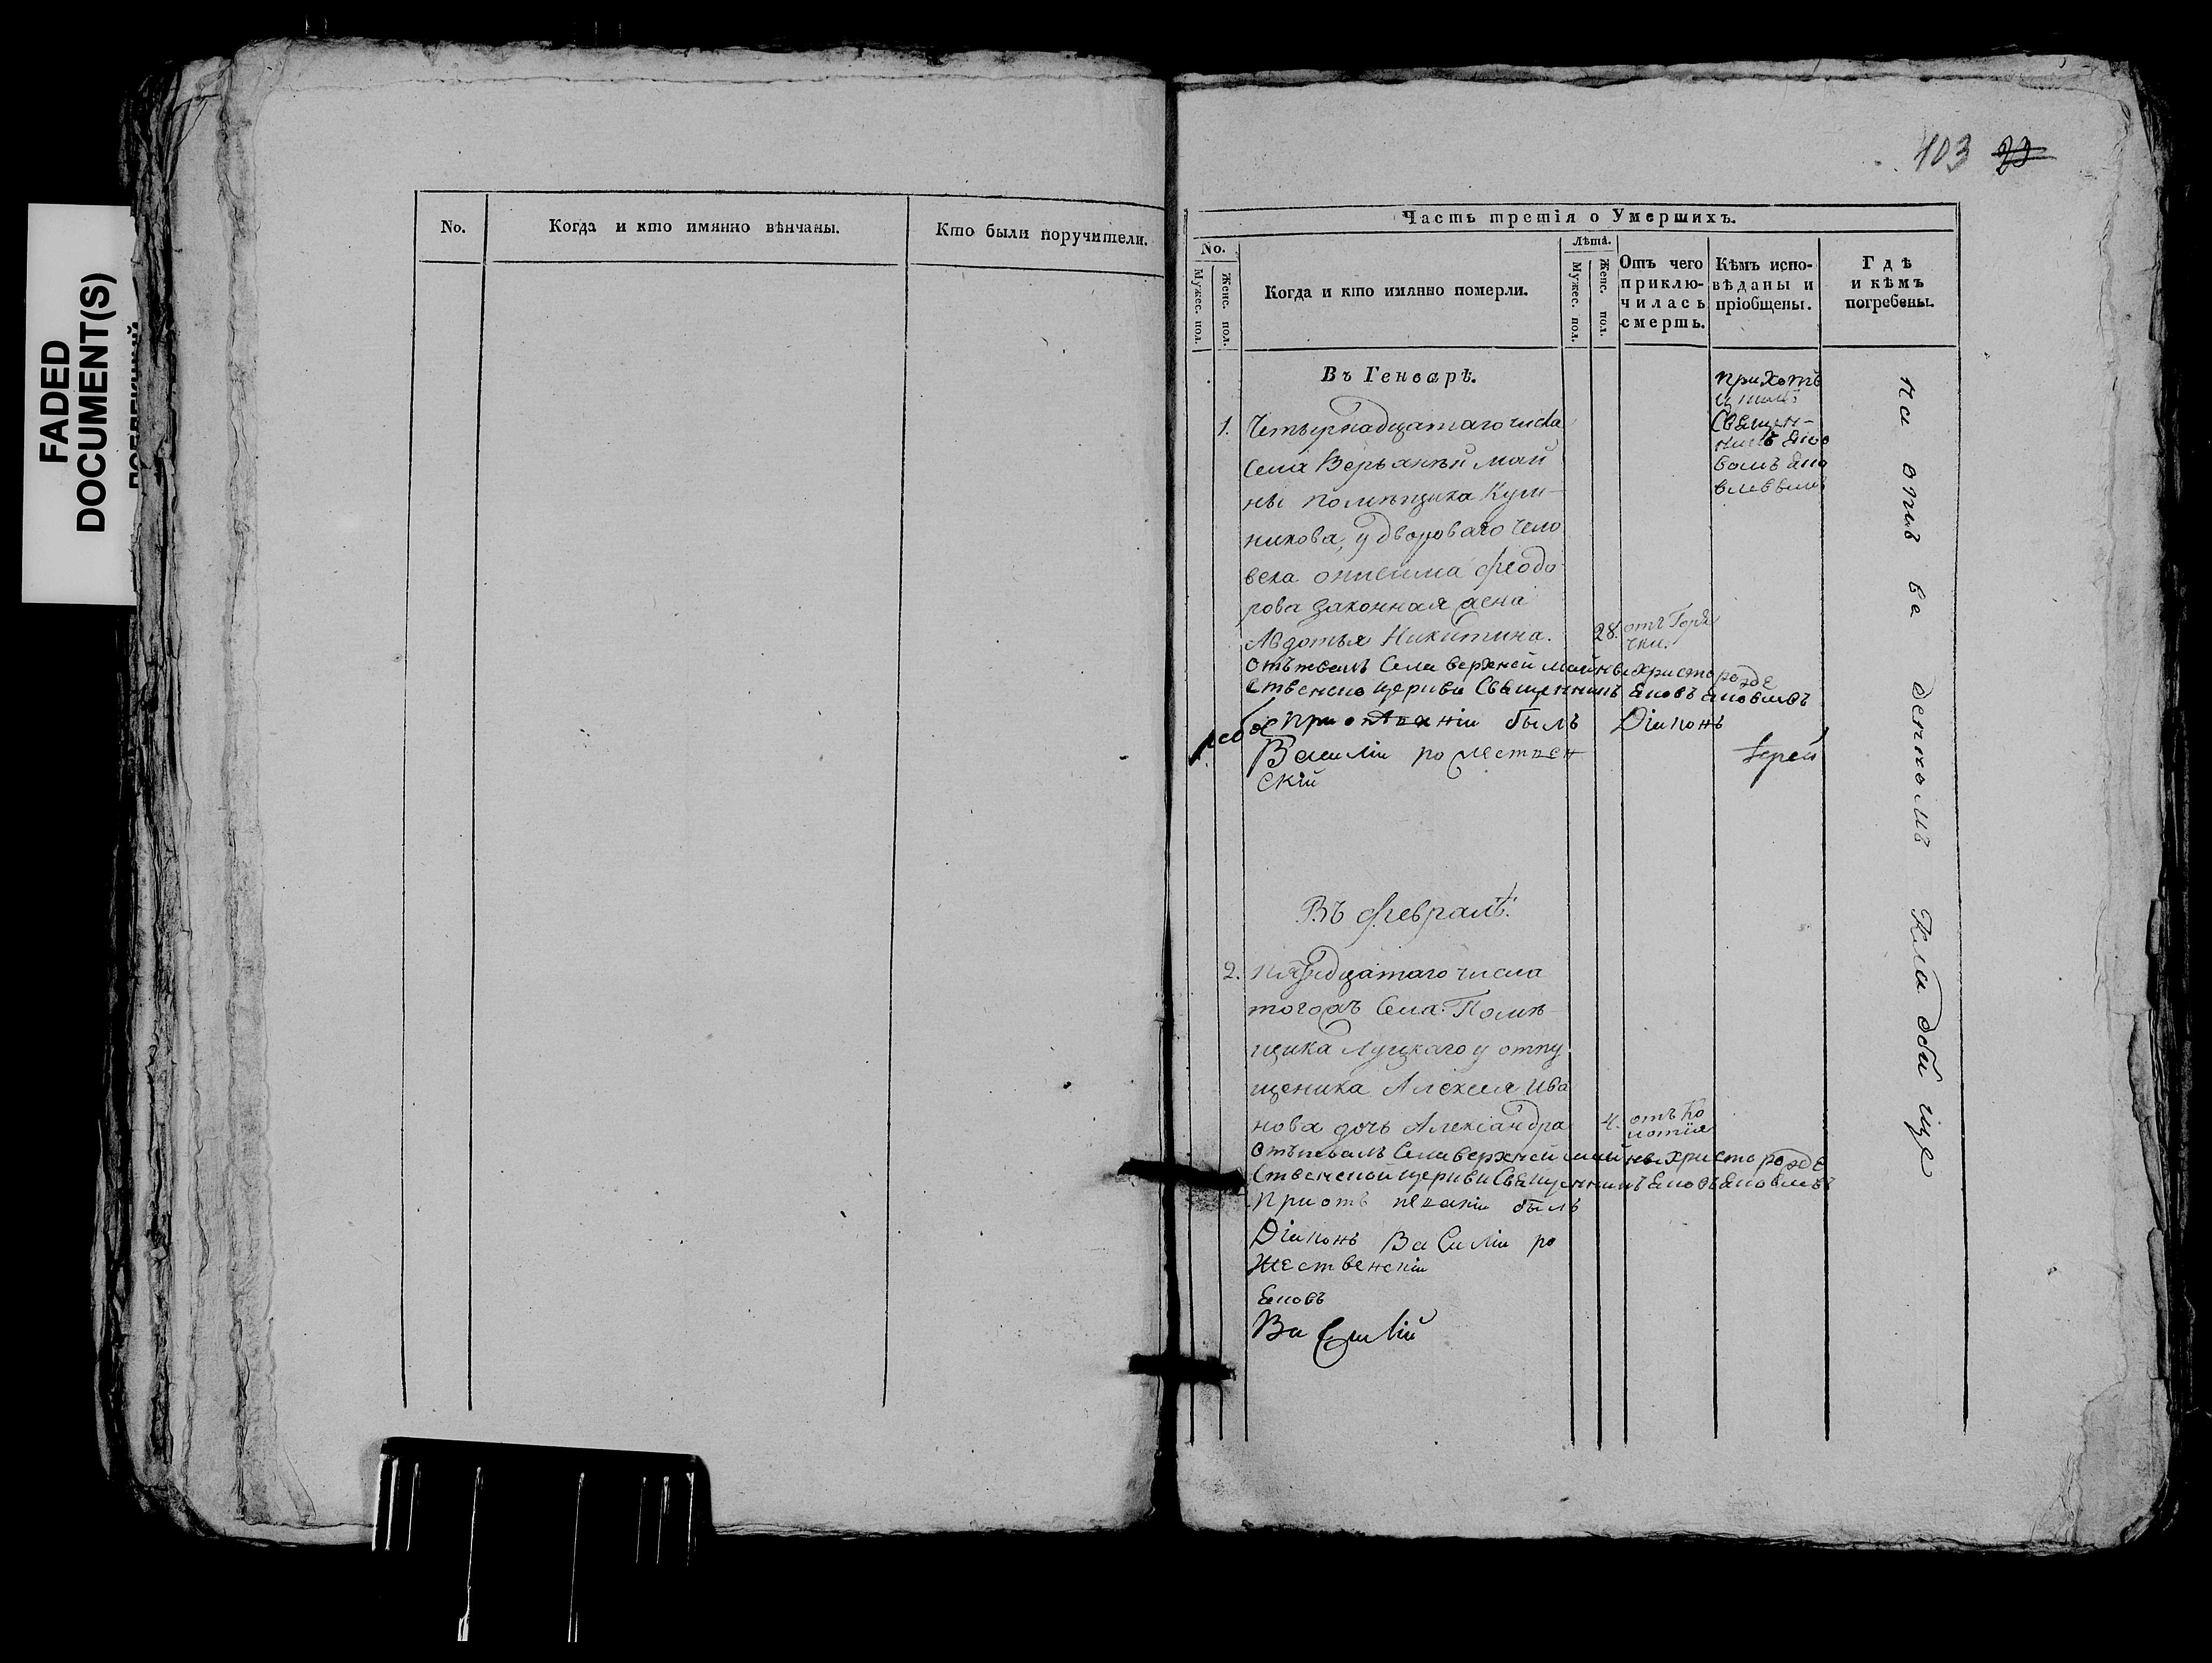 FADED
DOCUMENT(S)
No.
Когда и кто имянно вѣнчаны.
Кто были поручители.
103 22
Часть третія о Умершихъ.
No.
Мужес. пол.
Женс. пол.
Когда и кто имянно померли.
Лѣта.
Мужес. пол.
Женс. пол.
Отъ чего
приклю-
чилась
смерть.
Кѣмъ испо-
вѣданы и
пріобщены.
Гдѣ
и кѣмъ
погребены.
Въ Генварѣ.
1. Четырнадцатаго числа
села Верьхнѣй май
ны помѣщика Кум-
никова, у двороваго чело
века онисима Феодо
рова законная жена
Авдотья Никитина.
28.
отъ Горя
чки.
прихотъ
Свѣщен-
никъ
отъпевалъ Села верхней майны христорожде
ственско церкви Свѣщенникъ Яковъ Яковлевъ
при отпеваніи былъ Діиконъ
Василіи рожествен
скій
Іерей
на отве денномъ Кладби ще
Въ Февралѣ.
2. пятнадцатаго числа
тогожъ Села: Помѣ
щика Луцкаго у отпу
щеника Алексея Ива
нова дочь Александра
4.
отъ Ко
лотія
отъпевалъ Села верхней майны христорожде
ственской церкви Свѣщенникъ Яковъ Яковлевъ
при отъ певаніи былъ
Діиконъ Василіи ро
жественскіи
Яковъ
Василій